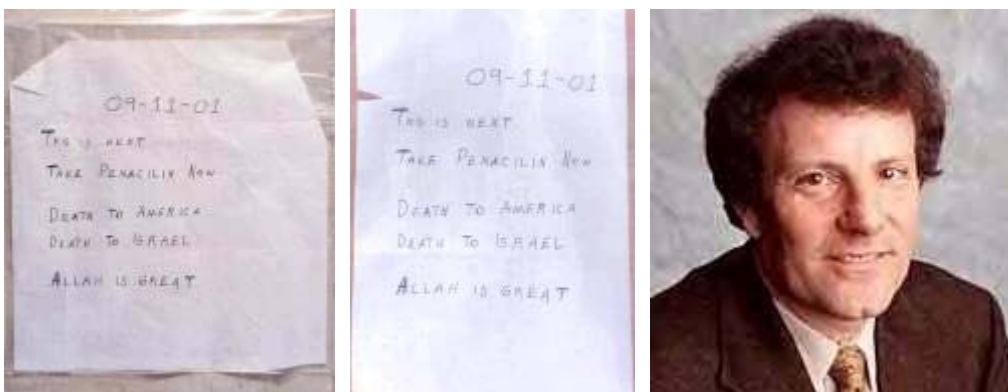 09-11-01
THIS IS NEXT
TAKE PENACILIN NOW
DEATH TO AMERICA
DEATH TO ISRAEL
ALLAH IS GREAT
09-11-01
THIS IS NEXT
TAKE PENACILIN NOW
DEATH TO AMERICA
DEATH TO ISRAEL
ALLAH IS GREAT